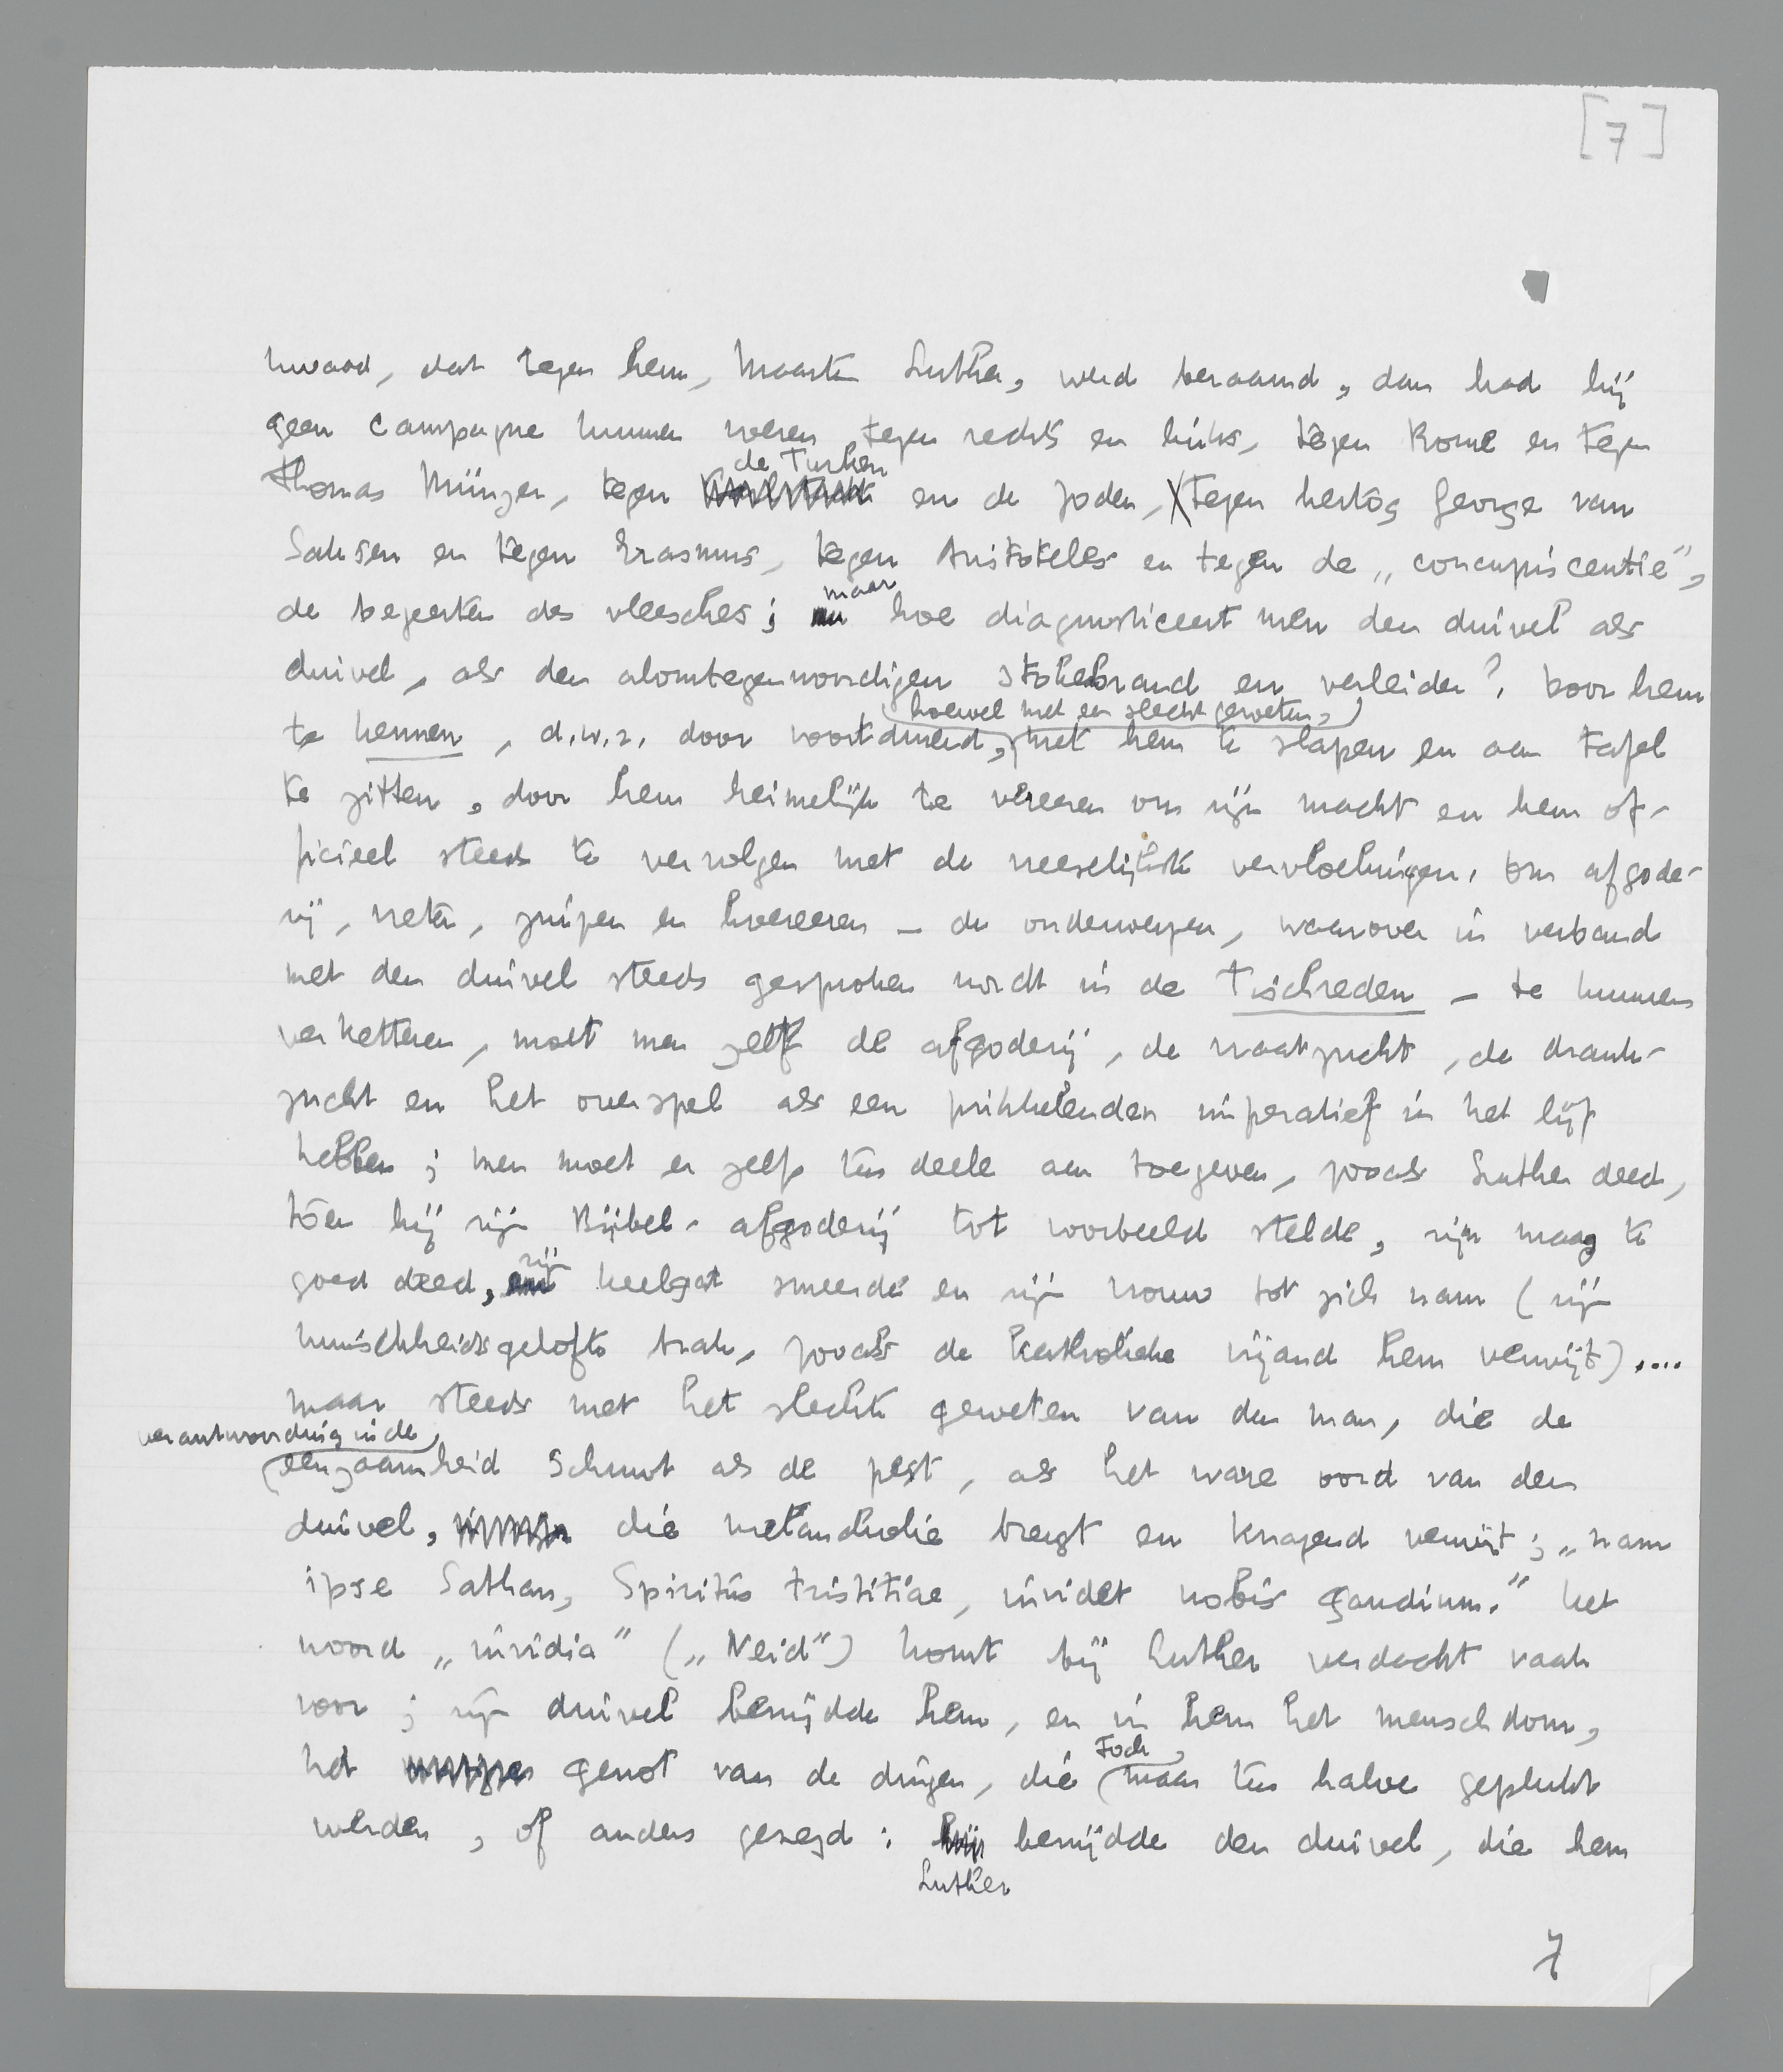 [7]
kwaad, dat tegen hem, Maarten Luther, werd beraamd, dan had hij
geen campagne kunnen voeren tegen rechts en links, tegen Rome en tegen
de Turken
Thomas Münzer, tegen en de Joden, tegen hertog George van
Saksen en tegen Erasmus, tegen Aristoteles en tegen de „concupiscentie”,
maar
de begeerten des vleesches; hoe diagnosticeert men den duivel als
duivel, als den alomtegenwoordigen stokebrand en verleider? Door hem
hoewel met een slecht geweten,
te kennen, d.w.z. door voortdurend, met hem te slapen en aan tafel
te zitten, door hem heimelijk te vereeren om zijn macht en hem of-
ficieel steeds te vervolgen met de vreeselijkste vervloekingen. Om afgode-
rij, vreten, zuipen en hoereeren – de onderwerpen, waarover in verband
met den duivel steeds gesproken wordt in de Tischreden – te kunnen
verketteren, moet men zelf de afgoderij, de vraatzucht, de drank-
zucht en het overspel als een prikkelenden imperatief in het lijf
hebben; men moet er zelfs ten deele aan toegeven, zooals Luther deed,
toen hij zijn Bijbel-afgoderij tot voorbeeld stelde, zijn maag te
zijn
goed deed, keelgat smeerde en zijn vrouw tot zich nam (zijn
kuischheidsgelofte brak, zooals de katholieke vijand hem verwijt)....
maar steeds met het slechte geweten van den man, die de
verantwoording in de
eenzaamheid schuwt als de pest, als het ware oord van den
duivel, die melancholie brengt en knagend verwijt; „nam
ipse Sathan, Spiritus tristitiae, invidet nobis gaudium.” Het
woord „invidia” („Neid”) komt bij Luther verdacht vaak
voor; zijn duivel benijdde hem, en in hem het menschdom,
toch
het genot van de dingen, die maar ten halve geplukt
werden, of anders gezegd: benijdde den duivel, die hem
Luther
7